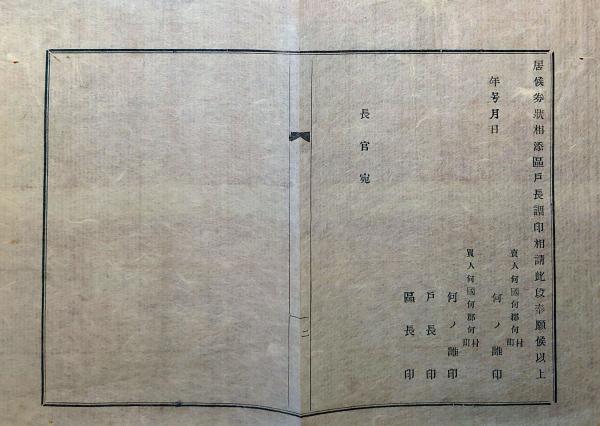 居候券狀相添區戶長調印相請此段奉願候以上
年号月日
賣人何國何郡何村町
何ノ誰印
買人何國何郡何村町
何ノ誰印
戶長印
區長印
長官宛
二